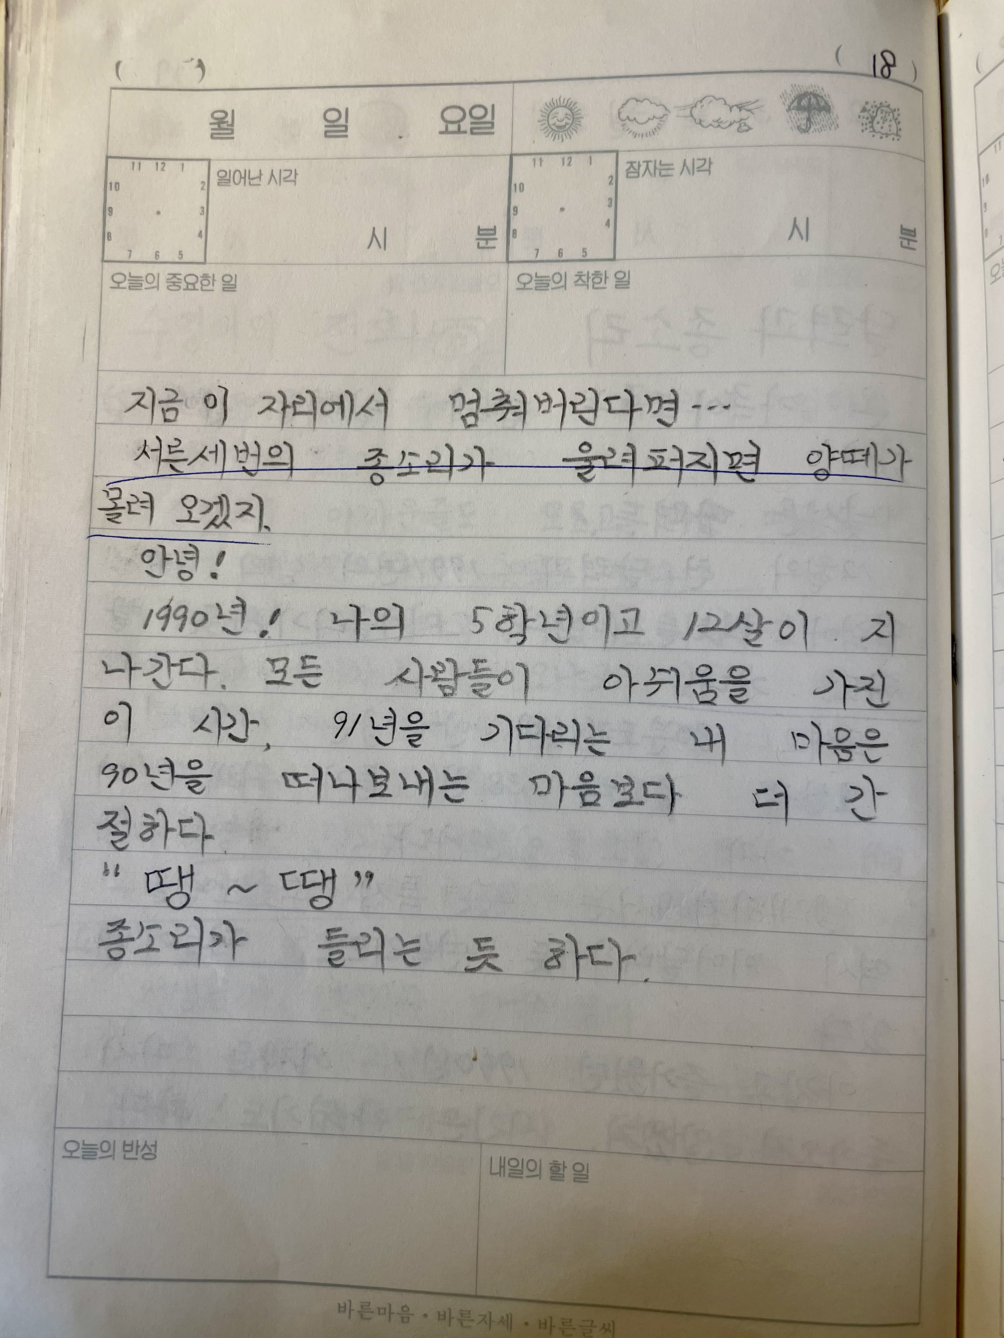 ( ) ( 18 )
월 일 요일
11 12 1 일어난 시각 11 12 1 잠자는 시각
10 2 10 2
9 3 9 3
8 4 시 분 8 4 시 분
7 6 5 7 6 5
오늘의 중요한 일 오늘의 착한 일
지금 이 자리에서 멈춰버린다면···
서른세번의 종소리가 울려퍼지면 양떼가
몰려 오겠지.
안녕!
1990년! 나의 5학년이고 12살이 지
나간다. 모든 사람들이 아쉬움을 가진
이 시간, 91년을 기다리는 내 마음은
90년을 떠나보내는 마음보다 더 간
절하다.
“ 땡 ~ 땡 ”
종소리가 들리는 듯 하다.
오늘의 반성 내일의 할 일
바른마음 · 바른자세 · 바른글씨